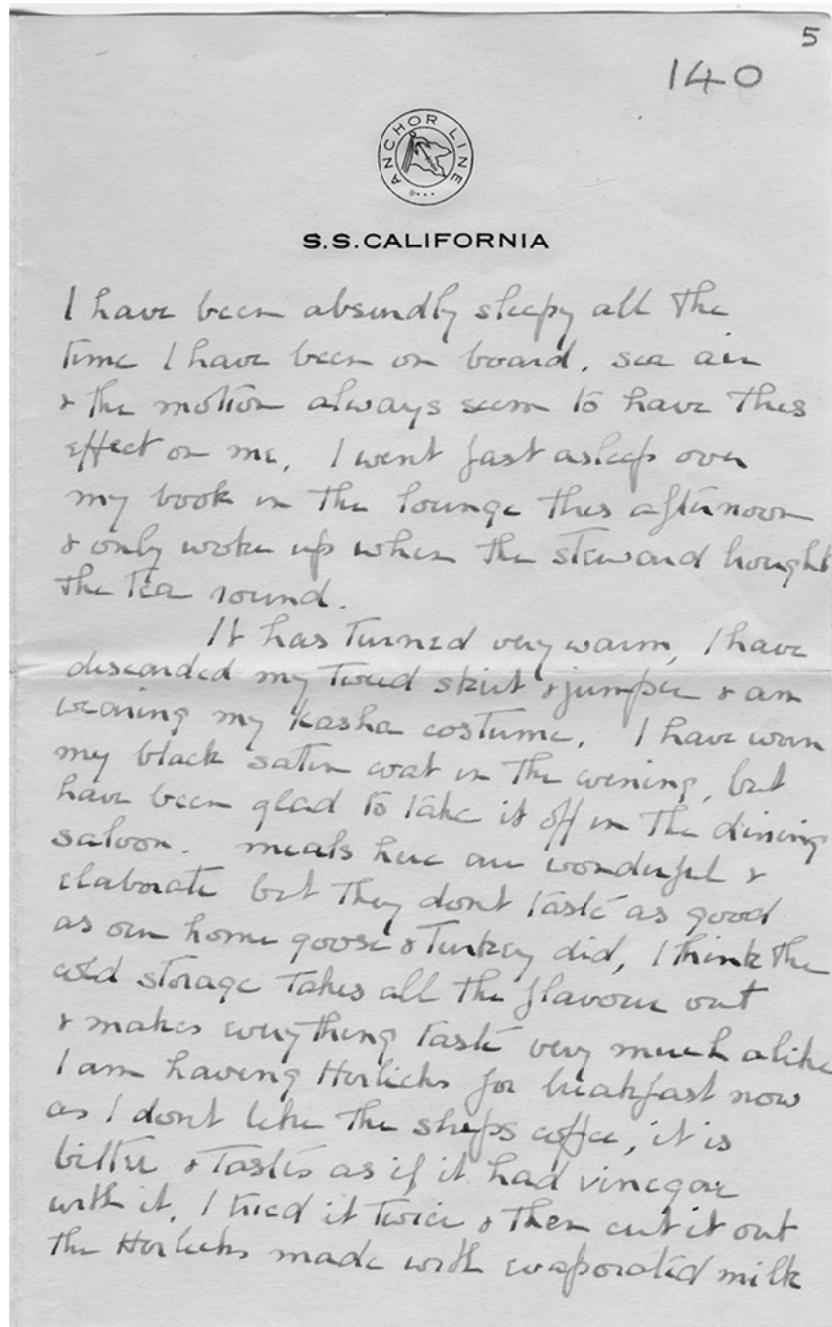 5
140
ANCHOR LINE
S.S. CALIFORNIA
I have been absurdly sleepy all the
time I have been on board. sea air
& the motion always seem to have this
effect on me. I went fast asleep over
my book in the lounge this afternoon
& only woke up when the steward bought
the tea round.
It has turned very warm, I have
discarded my tweed skirt & jumper & am
wearing my Kasha costume. I have worn
my black satin coat in the evening, but
have been glad to take it off in the dining
saloon. meals here are wonderful &
elaborate but they dont taste as good
as our home goose & Turkey did, I think the
cold storage takes all the flavour out
& makes everything taste very much alike
I am having Horlicks for breakfast now
as I dont like the ships coffee, it is
bitter & tastes as if it had vinegar
with it. I tried it twice & then cut it out
the Horlicks made with evaporated milk